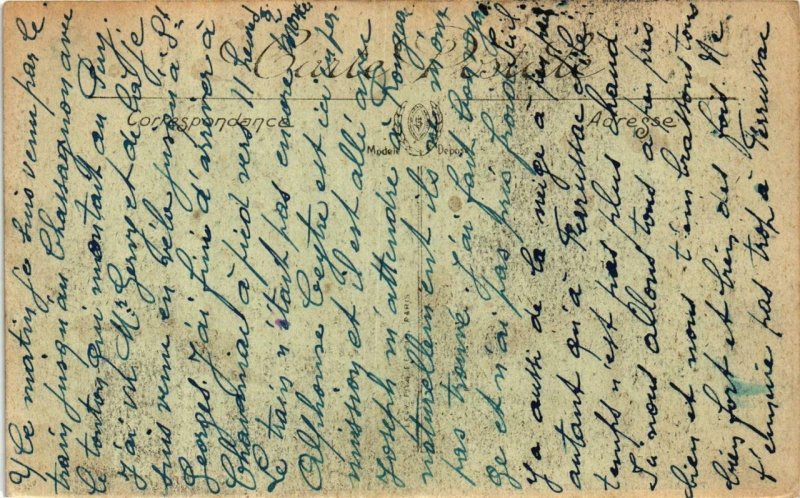 Carte Postale
Correspondance
Adresse
Modèle Déposé
PARIS
Ce matin je suis venu par le
train jusqu'au Chassagnon avec
le tonton qui montait au Puy.
J'ai vu Mr Gerry et de là je
suis venu en vélo jusqu'à St
Georges. J'ai fini d'arriver à
Chavaniac à pied vers 11 heures
Le train n'était pas encore
Alphonse Veyire est ici en per
mission et il est allé avec
Joseph m'attendre à
naturellement ils ne m'ont
pas trouvé. J'ai fait bon voya
ge et n'ai pas pris froid. Il
y a aussi de la neige à peu près
autant qu'à Ferrussac et le
temps n'est pas plus chaud
Ici nous allons tous à peu près
bien et nous t'embrassons tous
bien fort et bien des fois. Ne
t'ennuie pas trop à Ferrussac